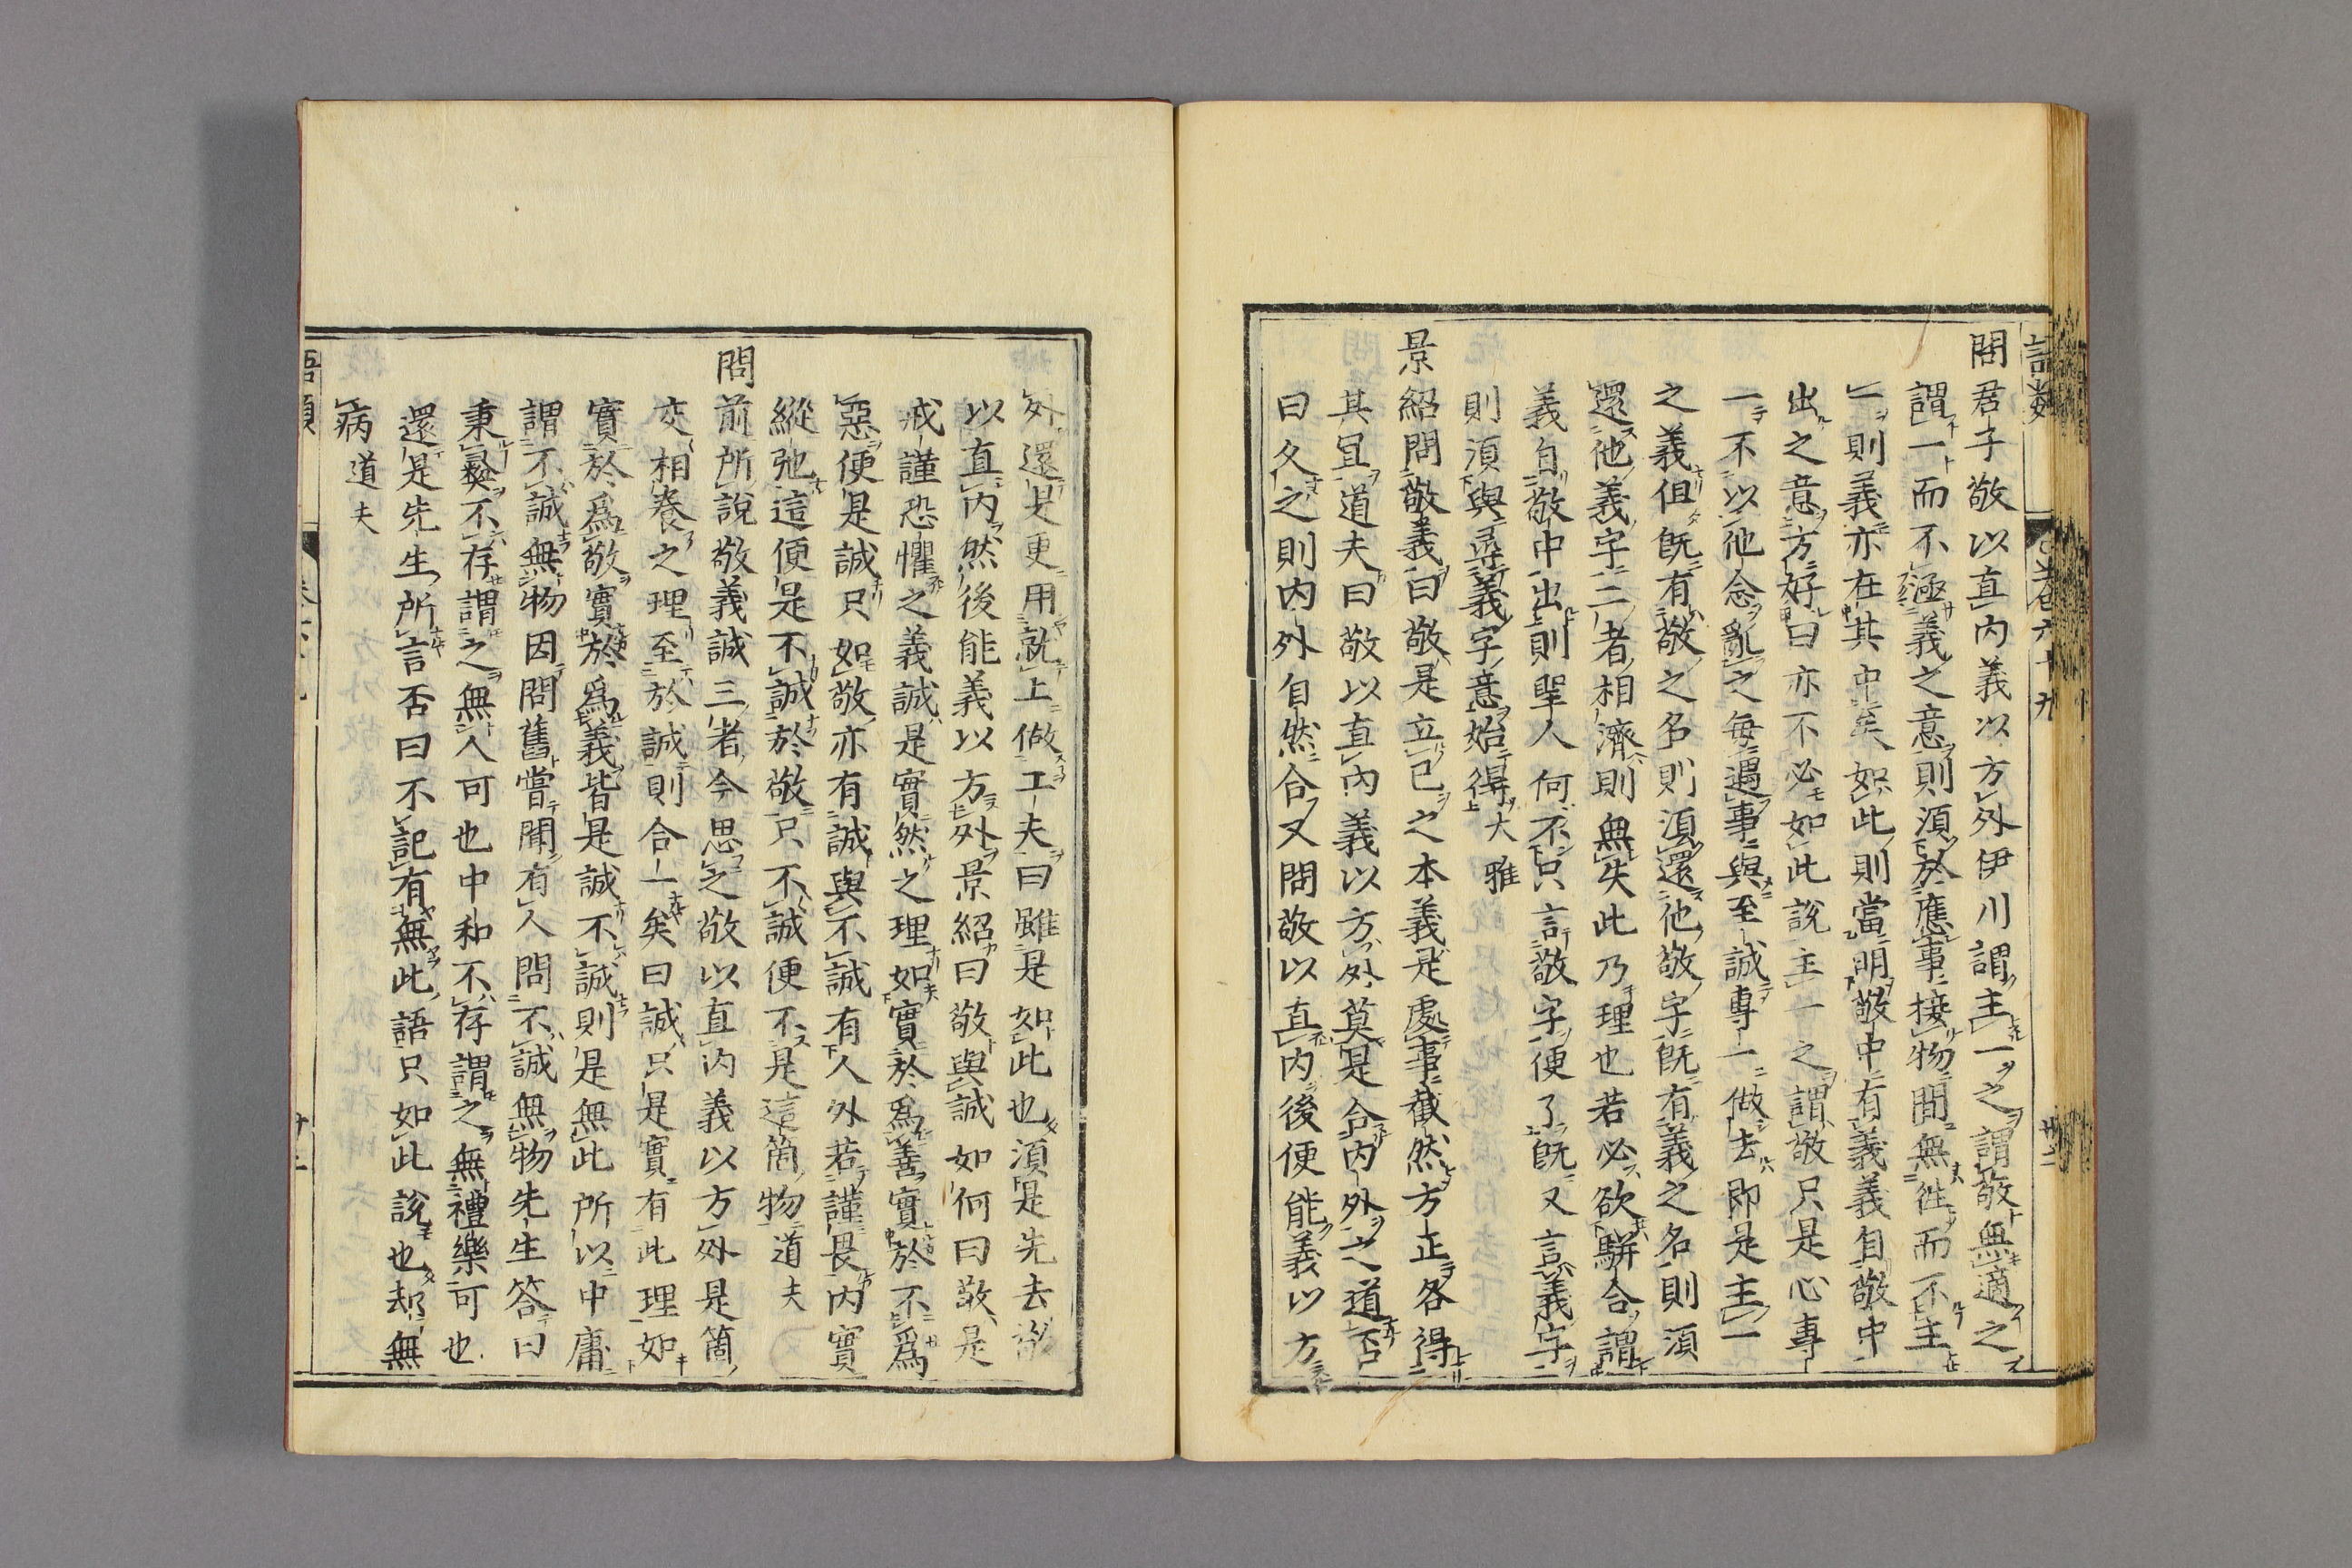 問君子敬以直內義以方外伊川謂主一之謂敬無適之
謂一而不涵義之意則須於應事接物間無徃而不主
一則義亦在其中矣如此則當明敬中有義義自敬中
出之意方好曰亦不必如此說主一之謂敬只是心專
一不以他念亂之每遇事與至誠專一做去即是主一
之義但旣有敬之名則須還他敬字旣有義之名則須
還他義字二者相濟則無失此乃理也若必欲騈合謂
義自敬中出則聖人何不只言敬字便了旣又言義字
則須與尋義字意始得大雅
景紹問敬義曰敬是立己之本義是處事截然方正各得
其宜道夫曰敬以直內義以方外莫是合內外之道否
曰久之則內外自然合又問敬以直內後便能義以方
外還是更用就上做工夫曰雖是如此也須是先去敬
以直內然後能義以方外景紹曰敬與誠如何曰敬是
戒謹恐懼之義誠是實然之理如實於爲善實於不爲
惡便是誠只如敬亦有誠與不誠有人外若謹畏內實
縱弛這便是不誠於敬只不誠便不是這箇物道夫
問前所說敬義誠三者今思之敬以直內義以方外是箇
交相養之理至於誠則合一矣曰誠只是實有此理如
實於爲敬實於爲義皆是誠不誠則是無此所以中庸
謂不誠無物因問舊嘗聞有人問不誠無物先生答曰
秉彛不存謂之無人可也中和不存謂之無禮樂可也
還是先生所言否曰不記有無此語只如此說也却無
病道夫
語類
卷六十九